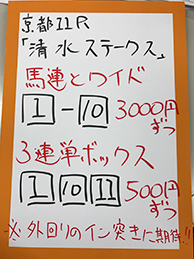 京都11R
「清水ステークス」
馬連とワイド
1-10 3000円
ずつ
3連単ボックス
1 10 11 500円
ずつ
※外回りのイン突きに期待!!